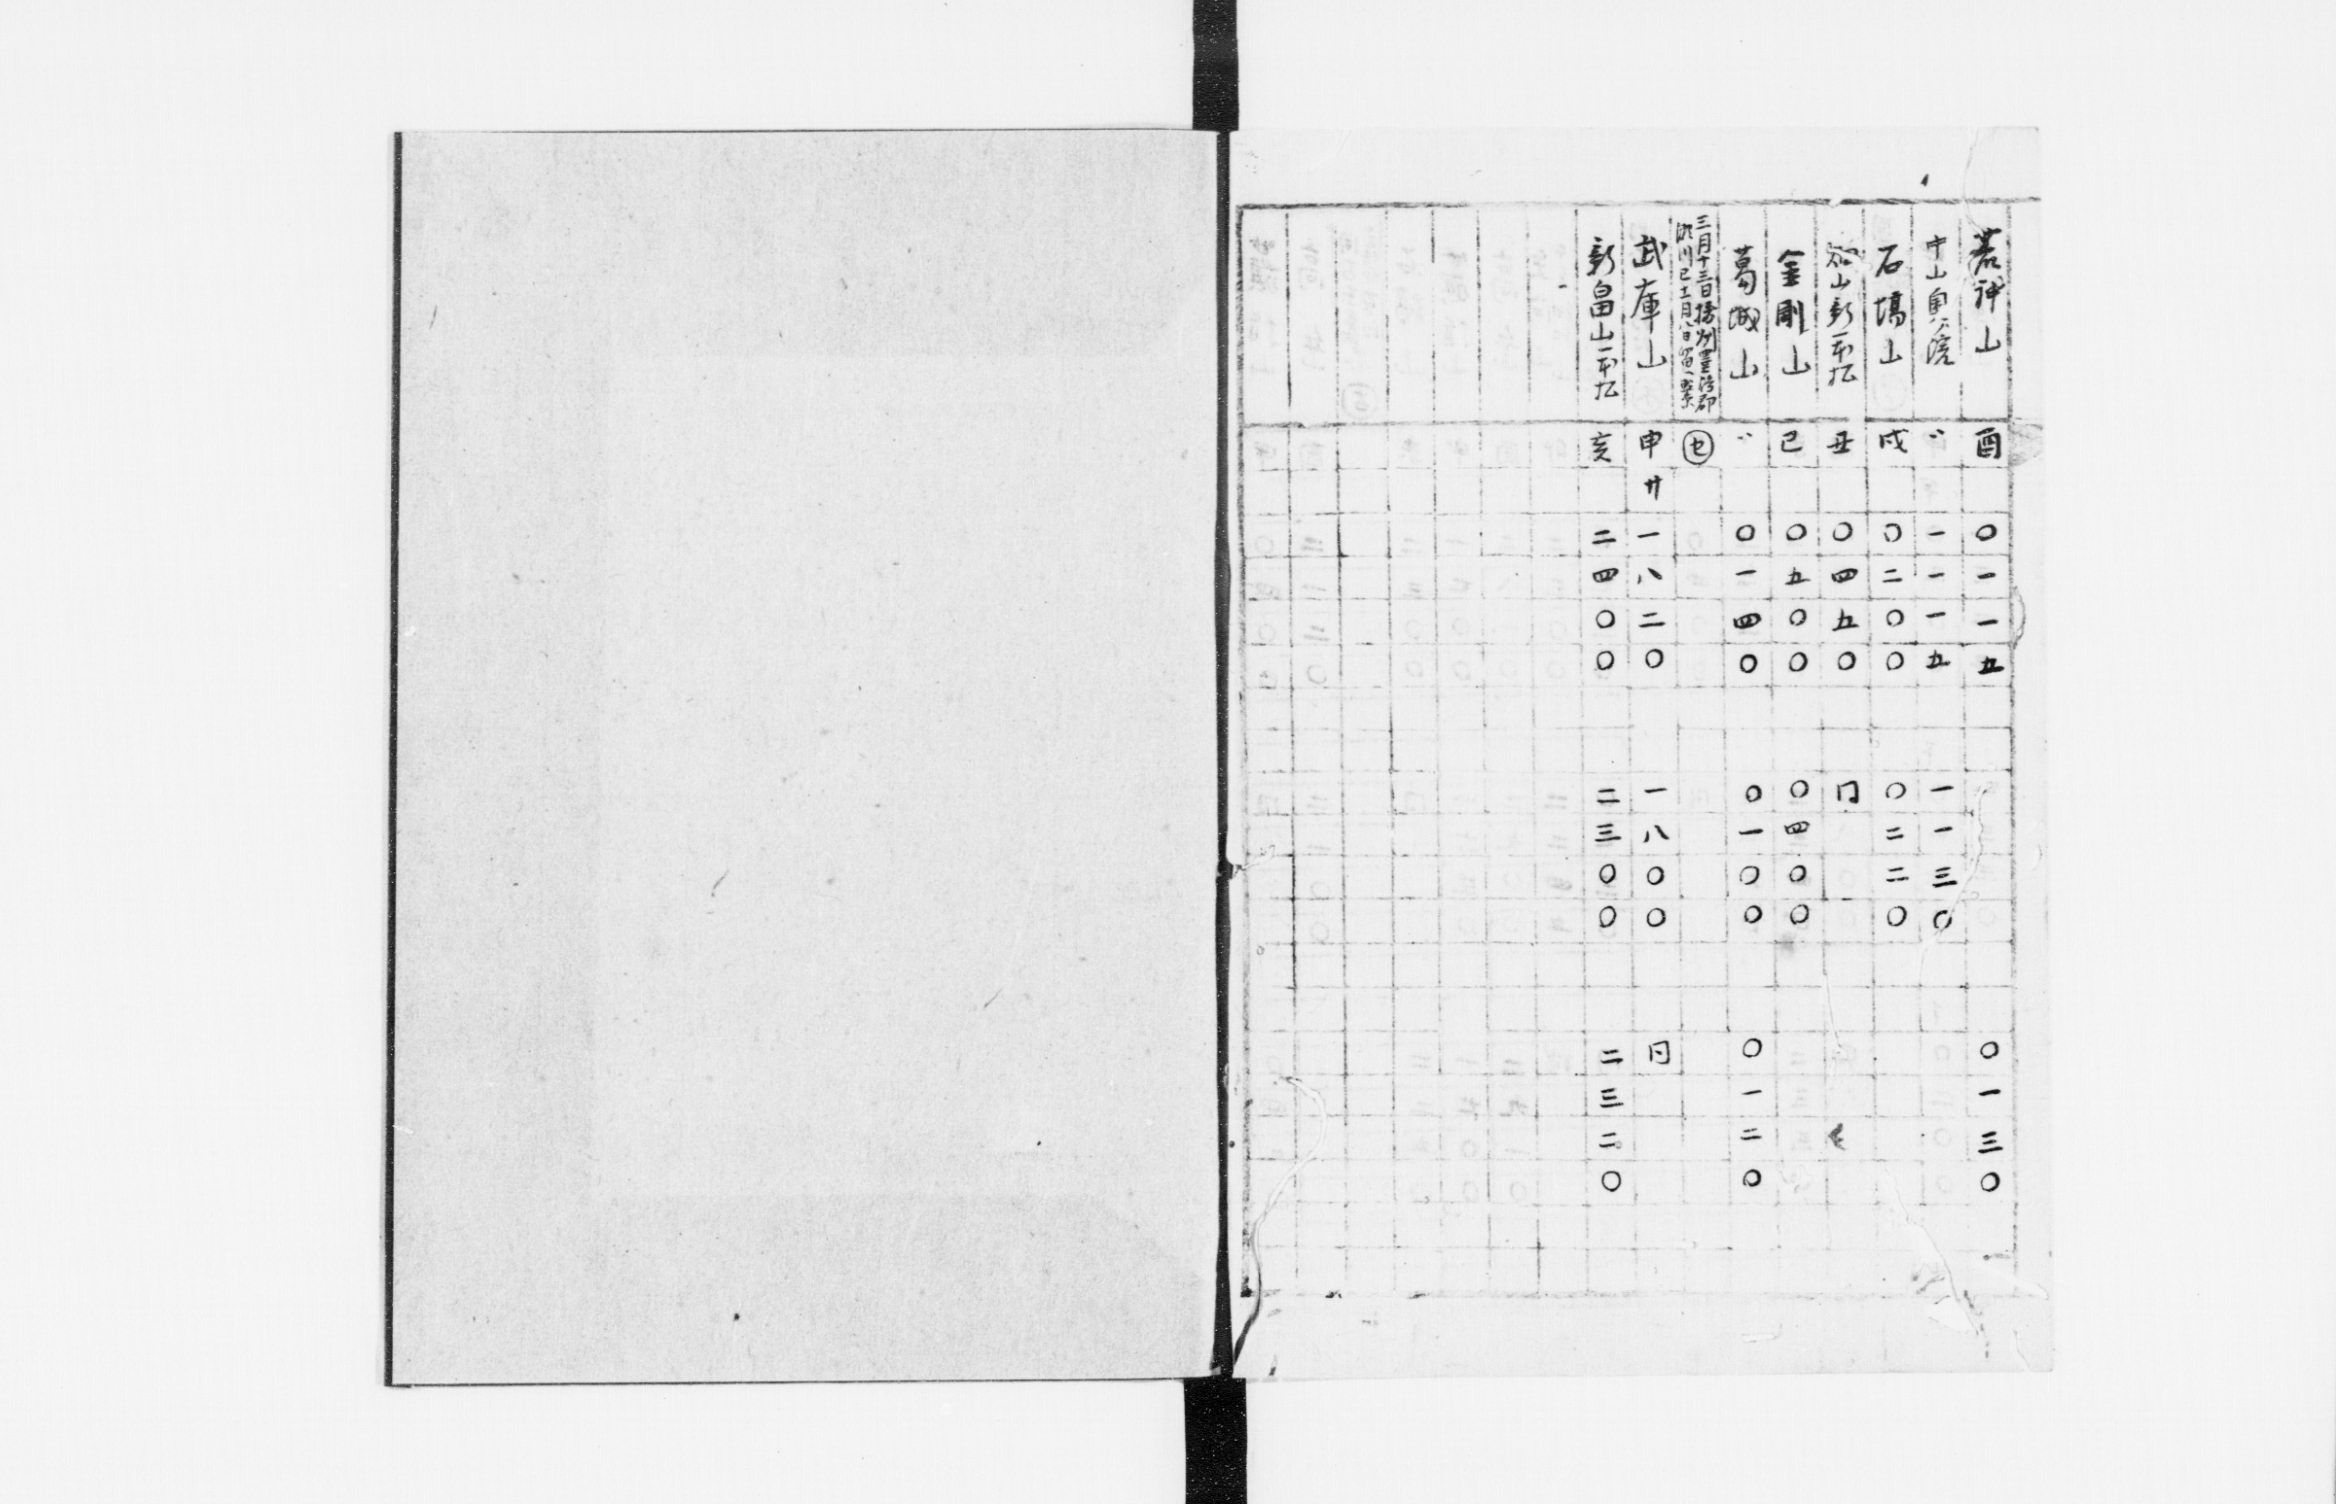 荒神山 酉 〇一一五 〇一三〇
中山奥ノ院 〃 一一一五 一一三〇
石塙山 戌 〇二〇〇 〇二二〇
山新一本松 丑 〇四五〇 同
金剛山 巳 〇五〇〇 〇四〇〇
葛城山 〃 〇一四〇 〇一〇〇 〇一二〇
三月十三日播州 郡
川 月八日 七
武庫山 申廿 一八二〇 一八〇〇 同
新畠山一本松 亥 二四〇〇 二三〇〇 二三二〇